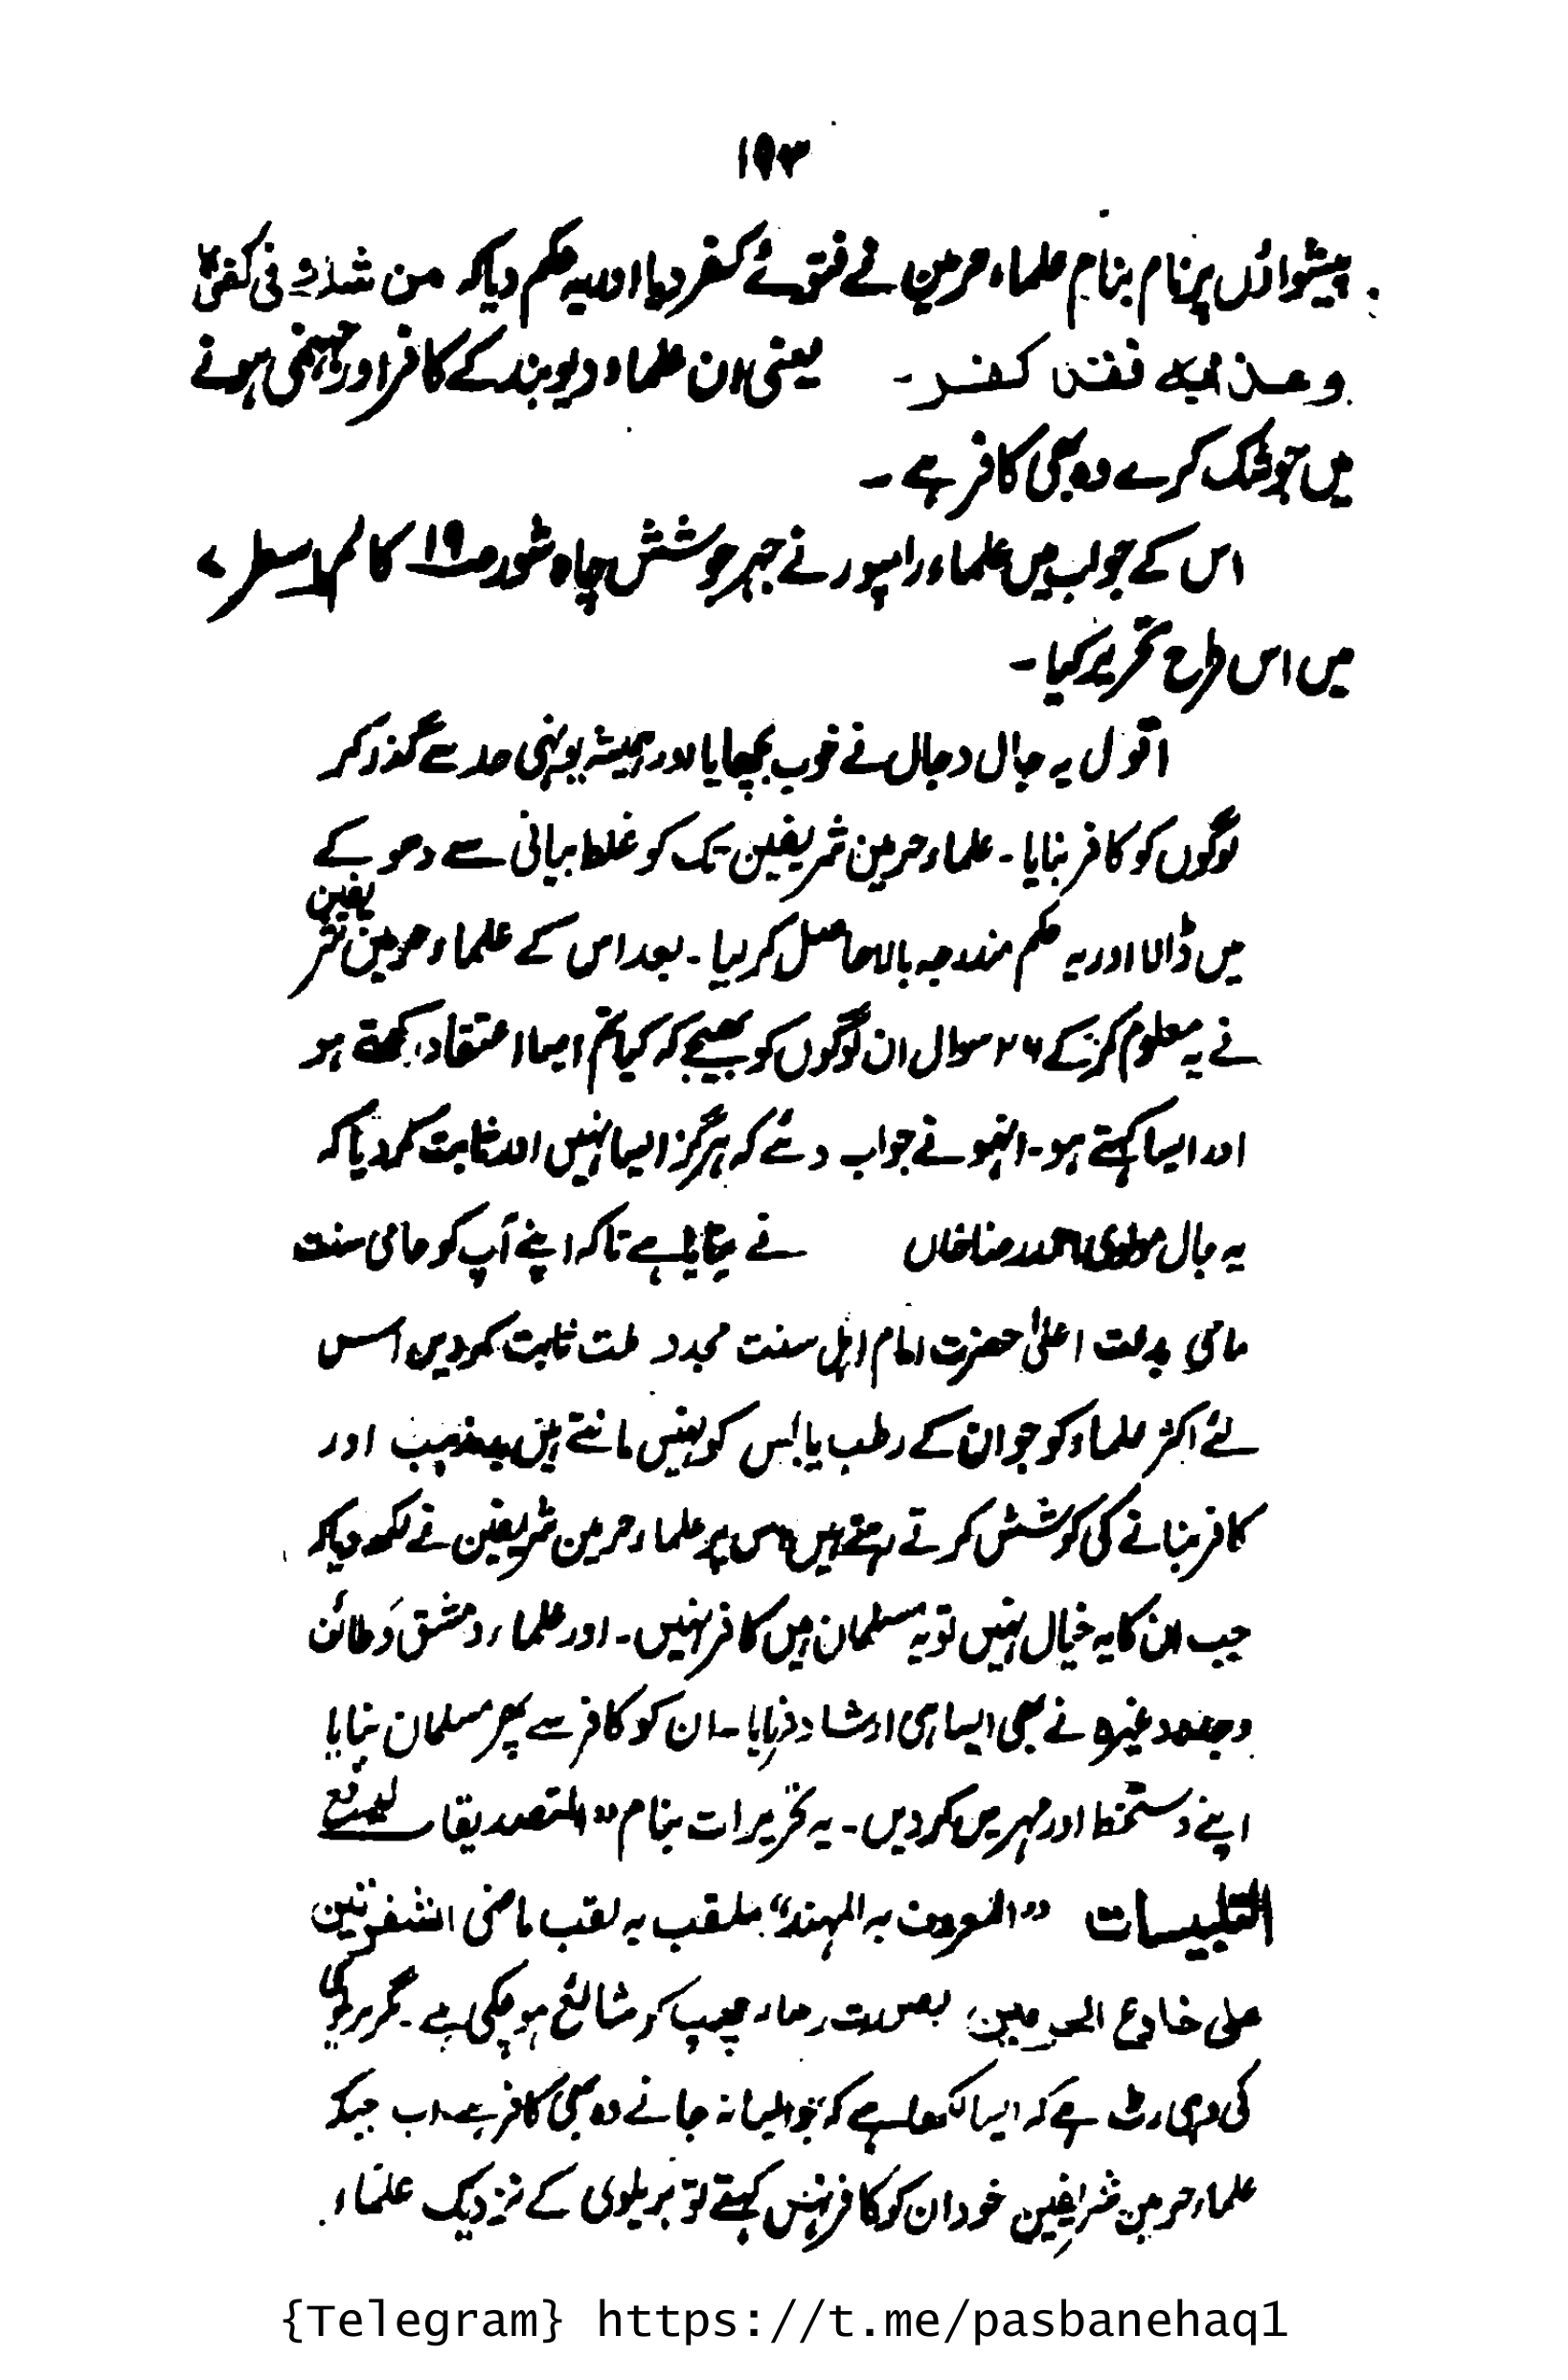 ۱۹۳
پیشواؤں پر نام بنام علماء حرمین نے فتوئے کفر دیا اور یہ حکم دیا کہ من شك فی کفرہ
وعذابہ فقد کفر۔ یعنی ان علماء دیوبند کے کافر اور جہنمی ہونے
میں جو شک کرے وہ بھی کافر ہے ۔
اس کے جواب میں علماء رامپور نے جبر جوشش چاہ شور ص۱۹ کالم سطر ۷
میں اس طرح تحریر کیا ۔
اقول یہ جال دجال نے خوب بچھایا اور ہمیشہ یونہی حد سے گذر کر
لوگوں کو کافر بنایا ۔ علماء حرمین شریفین تک کو غلط بیانی سے دھوکے
میں ڈالا اور یہ حکم مندرجہ بالا حاصل کر لیا ۔ بعد اس کے علماء حرمین شریفین
نے یہ معلوم کرکے ۲۶ سوال ان لوگوں کو بھیجے کہ کیا تم ایسا اعتقاد رکھتے ہو
اور ایسا کہتے ہو۔ انہو نے جواب دئے کہ ہرگز ایسا نہیں اور ثابت کر دیا کہ
یہ جال مولوی احمد رضا خاں نے بچھایا ہے تاکہ اپنے آپ کو حامی سنت
ماحی بدعت اعلیٰ حضرت امام اہل سنت مجدد ملت ثابت کردیں اس
لئے اکثر علماء کو جو ان کے رطب یابس کو نہیں مانتے ہیں بدمذہب اور
کافر بنانے کی کوشش کرتے رہتے ہیں اس پر علماء حرمین شریفین نے لکھ دیا کہ
جب ان کا یہ خیال نہیں تو یہ مسلمان ہیں کافر نہیں۔ اور علماء دمشق و طائف
وغیرہ نے بھی ایسا ہی ارشاد فرمایا ۔ ان کو کافر سے پھر مسلمان بنایا
اپنے دستخط اور مہریں کردیں ۔ یہ تحریرات بنام "التصدیقات لدفع
التلبیسات "المعروف بہ المہند" ملقب بہ لقب ماضی الشفرتین
علی خادع الحرمین، بصورت رسالہ چھپ کر شائع ہو چکی ہے ۔ مگر بریلوی
کی وہی رٹ ہے کہ ایسا لکھا ہے کہ جو ایسا نہ جانے وہ بھی کافر ہے۔ اب جبکہ
علماء حرمین شریفین خود ان کو کافر نہیں کہتے تو بریلوی کے نزدیک علماء
{Telegram} https://t.me/pasbanehaq1